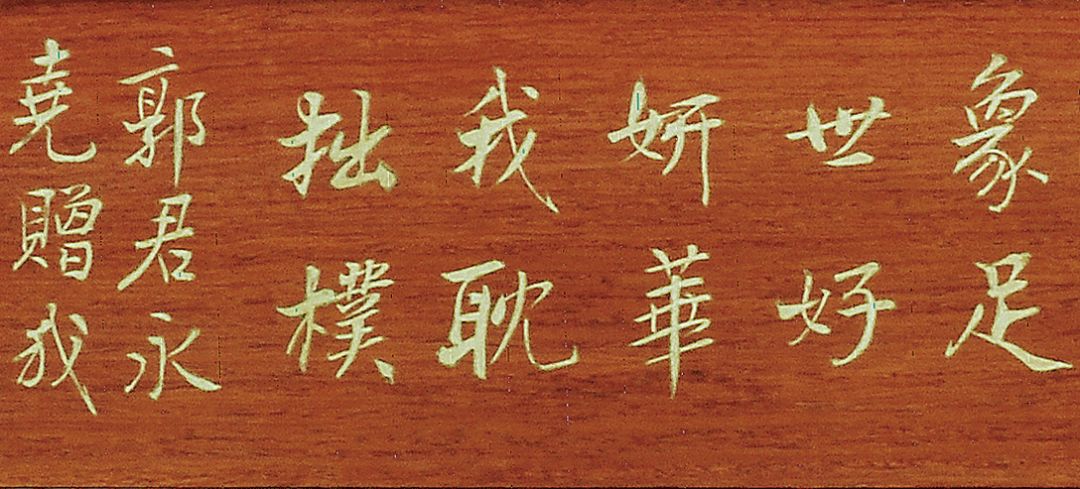 象足
世好
妍華
我耽
拙樸
郭君永
堯贈我